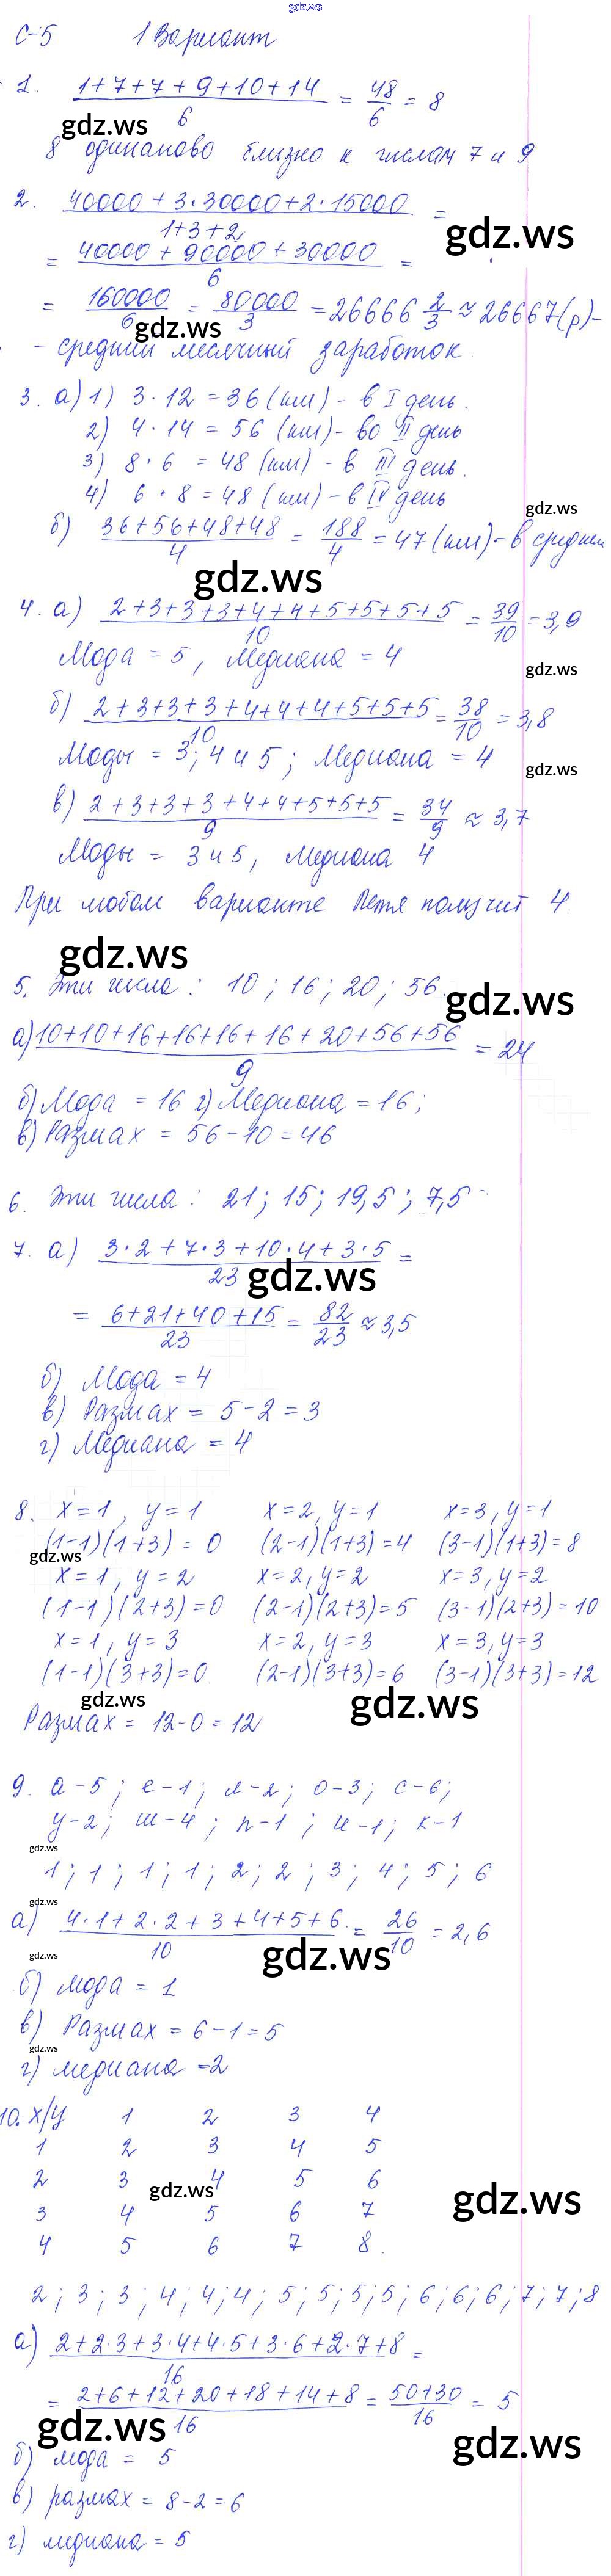 gdz.ws
С-5 1 Вариант
1. (1+7+7+9+10+14)/6 = 48/6 = 8
gdz.ws
8 одинаково близко к числам 7 и 9
2. (40000+3·30000+2·15000)/(1+3+2) =
gdz.ws
= (40000+90000+30000)/6 =
= 160000/6 = 80000/3 = 26666 2/3 ≈ 26667(р)-
- средний месячный заработок.
3. а) 1) 3·12 = 36 (км) - в I день.
2) 4·14 = 56 (км) - во II день
3) 8·6 = 48 (км) - в III день.
4) 6·8 = 48 (км) - в IV день
gdz.ws
б) (36+56+48+48)/4 = 188/4 = 47 (км) - в средн
gdz.ws
4. а) (2+3+3+3+4+4+5+5+5+5)/10 = 39/10 = 3,9
Мода = 5, Медиана = 4
gdz.ws
б) (2+3+3+3+4+4+4+5+5+5)/10 = 38/10 = 3,8
Моды = 3; 4 и 5; Медиана = 4
gdz.ws
в) (2+3+3+3+4+4+5+5+5)/9 = 34/9 ≈ 3,7
Моды = 3 и 5, медиана 4
При любом варианте Петя получит 4.
gdz.ws
5. Эти числа: 10; 16; 20; 56.
gdz.ws
а) (10+10+16+16+16+16+20+56+56)/9 = 24
б) Мода = 16 г) Медиана = 16;
в) Размах = 56-10 = 46
6. Эти числа: 21; 15; 19,5; 7,5
7. а) (3·2+7·3+10·4+3·5)/23 =
gdz.ws
= (6+21+40+15)/23 = 82/23 ≈ 3,5
б) Мода = 4
в) Размах = 5-2 = 3
г) Медиана = 4
8. x=1, y=1 x=2, y=1 x=3, y=1
(1-1)(1+3) = 0 (2-1)(1+3)=4 (3-1)(1+3)=8
gdz.ws
x=1, y=2 x=2, y=2 x=3, y=2
(1-1)(2+3)=0 (2-1)(2+3)=5 (3-1)(2+3)=10
x=1, y=3 x=2, y=3 x=3, y=3
(1-1)(3+3)=0. (2-1)(3+3)=6 (3-1)(3+3)=12
gdz.ws gdz.ws
Размах = 12-0 = 12
9. а-5; е-1; л-2; о-3; с-6;
у-2; ш-4; п-1; и-1; к-1
gdz.ws
1; 1; 1; 1; 2; 2; 3; 4; 5; 6
gdz.ws
а) (4·1+2·2+3+4+5+6)/10 = 26/10 = 2,6
gdz.ws gdz.ws
б) мода = 1
в) Размах = 6-1=5
gdz.ws
г) медиана = 2
10. x/y 1 2 3 4
1 2 3 4 5
2 3 4 5 6
gdz.ws gdz.ws
3 4 5 6 7
4 5 6 7 8.
2; 3; 3; 4; 4; 4; 5; 5; 5; 5; 6; 6; 6; 7; 7; 8
а) (2+2·3+3·4+4·5+3·6+2·7+8)/16 =
= (2+6+12+20+18+14+8)/16 = (50+30)/16 = 5
gdz.ws gdz.ws
б) мода = 5
в) размах = 8-2 = 6
г) медиана = 5